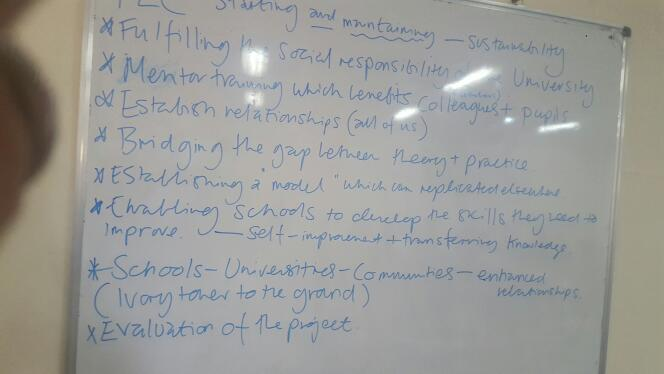 PLC starting and maintaining — sustainability
* Fulfilling the social responsibility of the University
* Mentor training which benefits colleagues + pupils
* Establish relationships (all of us)
* Bridging the gap between theory + practice
* Establishing a "model" which can replicated elsewhere
* Enabling schools to develop the skills they need to
improve. — self-improvement + transferring knowledge
* Schools – Universities – Communities – enhanced
relationships.
(Ivory tower to the grand)
x Evaluation of the project.